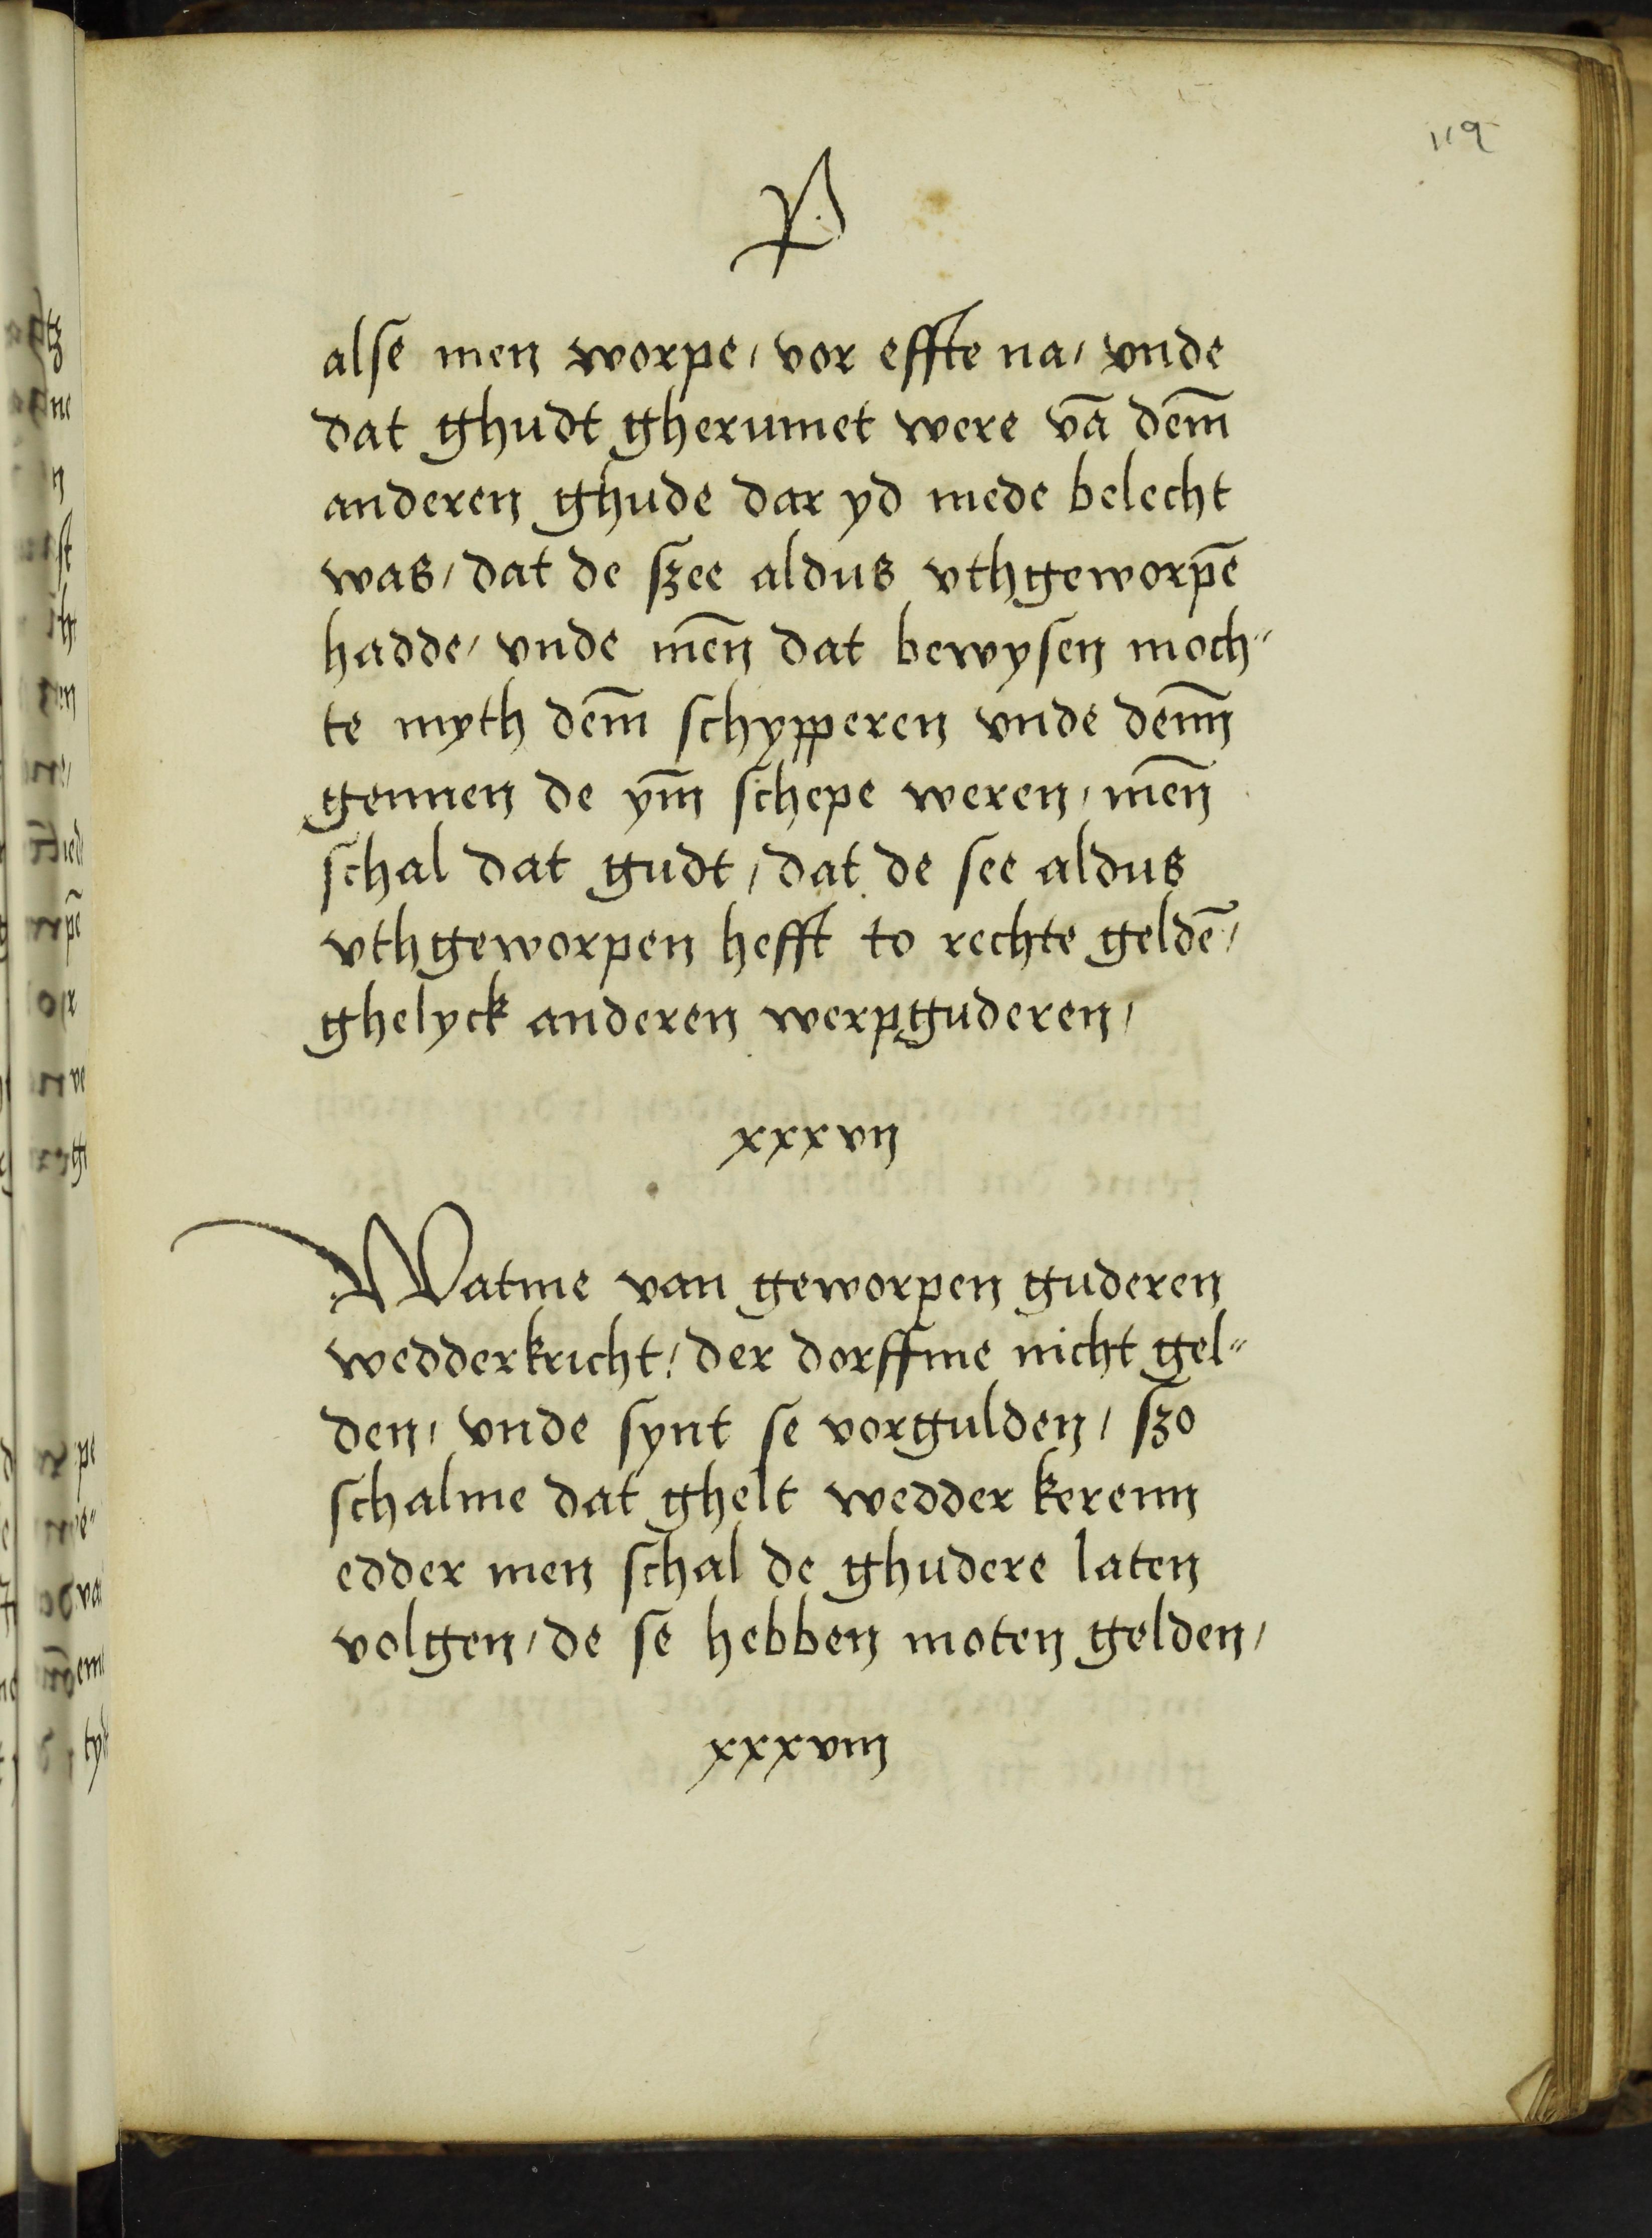 119
P
alse men worpe / vor effte na / vnde
dat ghudt gherumet were vā dem̄
anderen ghude dar yd mede belecht
was / dat de szee aldus vthgeworpē
hadde / vnde men̄ dat bewysen moch"
te myth dem̄ schypperen vnde dem̄
gennen de ym̄ schepe weren / men̄
schal dat gudt / dat de see aldus
vthgeworpen hefft to rechte geldē /
ghelyck anderen werpguderen /
xxxvij
Watme van geworpen guderen
wedderkricht / der dorffme nicht gel"
den / vnde synt se vorgulden / szo
schalme dat ghelt wedder kerenn
edder men schal de ghudere laten
volgen / de se hebben moten gelden /
xxxviij